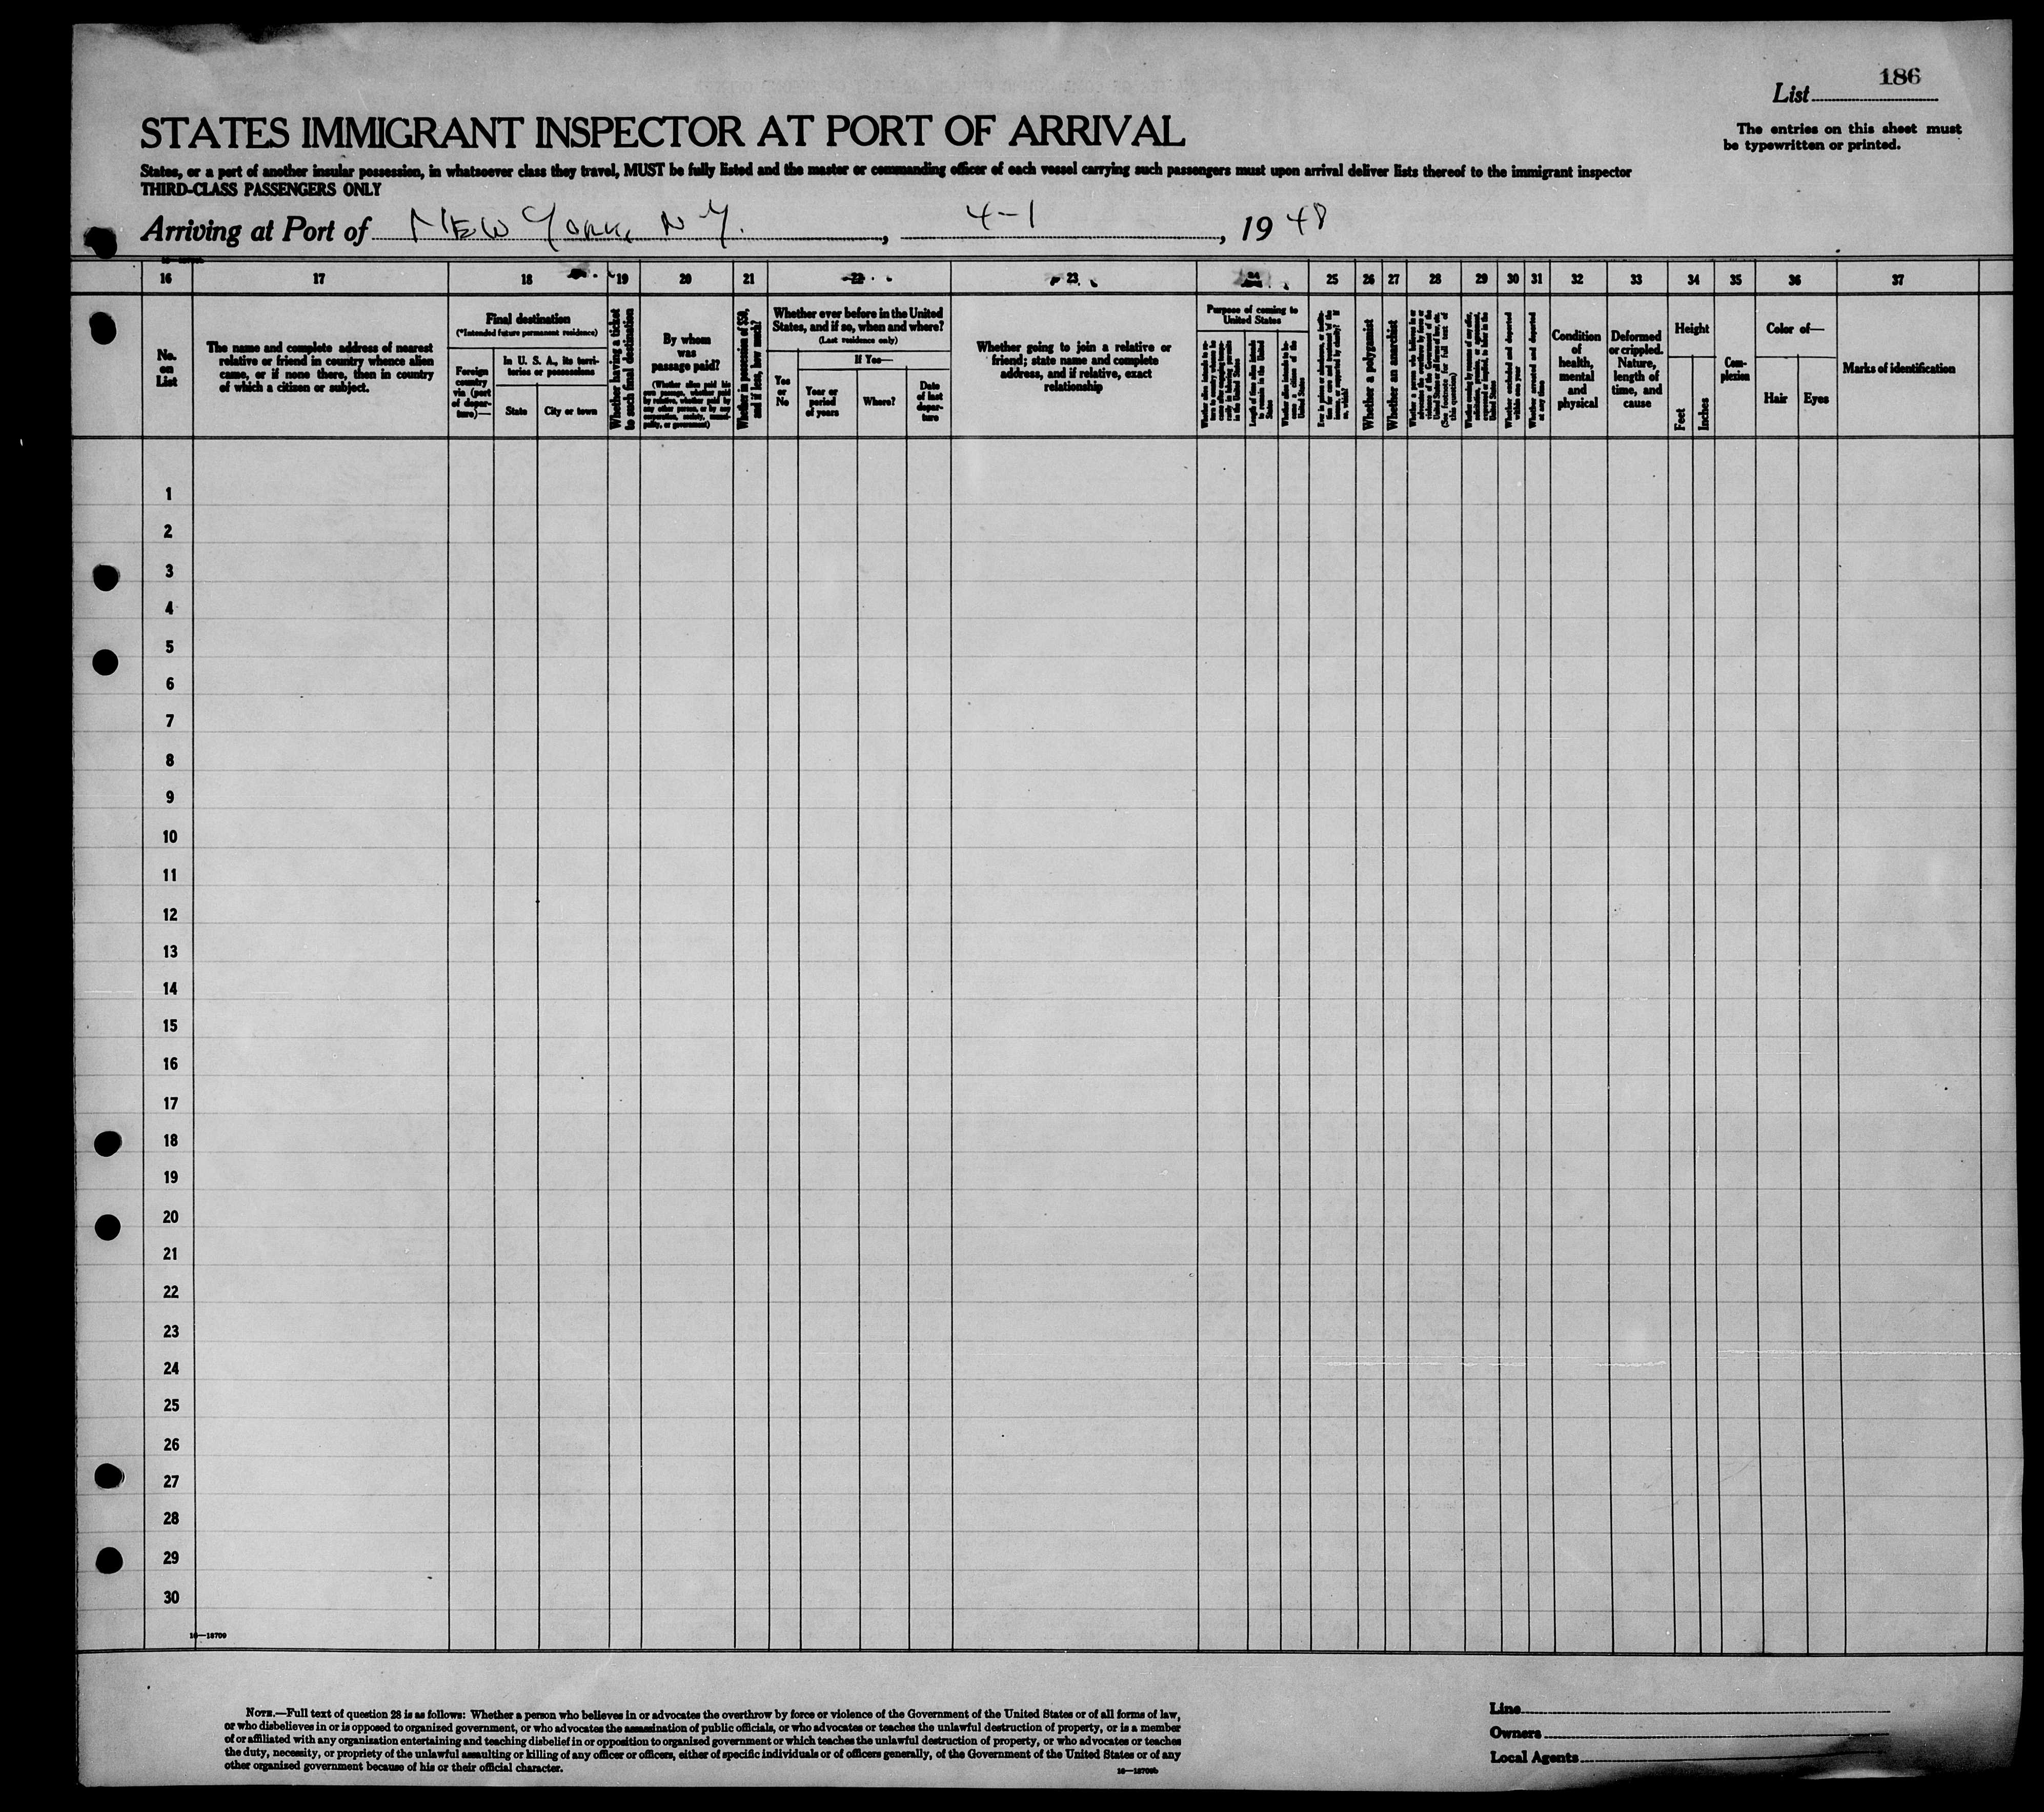 List 186
The entries on this sheet must
be typewritten or printed.
STATES IMMIGRANT INSPECTOR AT PORT OF ARRIVAL
States, or a port of another insular possession, in whatsoever class they travel, MUST be fully listed and the master or commanding officer of each vessel carrying such passengers must upon arrival deliver lists thereof to the immigrant inspector
THIRD-CLASS PASSENGERS ONLY
Arriving at Port of New York, N Y. , 4-1 , 19 48
16 17 18 19 20 21 22 23 24 25 26 27 28 29 30 31 32 33 34 35 36 37
No.
on
List
The name and complete address of nearest
relative or friend in country whence alien
came, or if none there, then in country
of which a citizen or subject.
Final destination
(*Intended future permanent residence)
Foreign
country
via (port
of depar-
ture)—
In U. S. A., its terri-
tories or possessions
State
City or town
Whether having a ticket
to such final destination
By whom
was
passage paid?
(Whether alien paid his
own passage, whether paid
by relative, whether paid by
any other person, or by any
corporation, society, munici-
pality, or government)
Whether in possession of $50,
and if less, how much?
Whether ever before in the United
States, and if so, when and where?
(Last residence only)
Yes
or
No
If Yes—
Year or
period
of years
Where?
Date
of last
depar-
ture
Whether going to join a relative or
friend; state name and complete
address, and if relative, exact
relationship
Purpose of coming to
United States
Length of time alien intends
to remain in the United
States
Whether alien intends to be-
come a citizen of the
United States
Whether a polygamist
Whether an anarchist
Whether excluded and deported
within one year
Whether arrested and deported
at any time
Condition
of
health,
mental
and
physical
Deformed
or crippled.
Nature,
length of
time, and
cause
Height
Feet
Inches
Com-
plexion
Color of—
Hair
Eyes
Marks of identification
1
2
3
4
5
6
7
8
9
10
11
12
13
14
15
16
17
18
19
20
21
22
23
24
25
26
27
28
29
30
16—18709
NOTE.—Full text of question 28 is as follows: Whether a person who believes in or advocates the overthrow by force or violence of the Government of the United States or of all forms of law,
or who disbelieves in or is opposed to organized government, or who advocates the assassination of public officials, or who advocates or teaches the unlawful destruction of property, or is a member
of or affiliated with any organization entertaining and teaching disbelief in or opposition to organized government or which teaches the unlawful destruction of property, or who advocates or teaches
the duty, necessity, or propriety of the unlawful assaulting or killing of any officer or officers, either of specific individuals or of officers generally, of the Government of the United States or of any
other organized government because of his or their official character.
16—18709b
Line
Owners
Local Agents